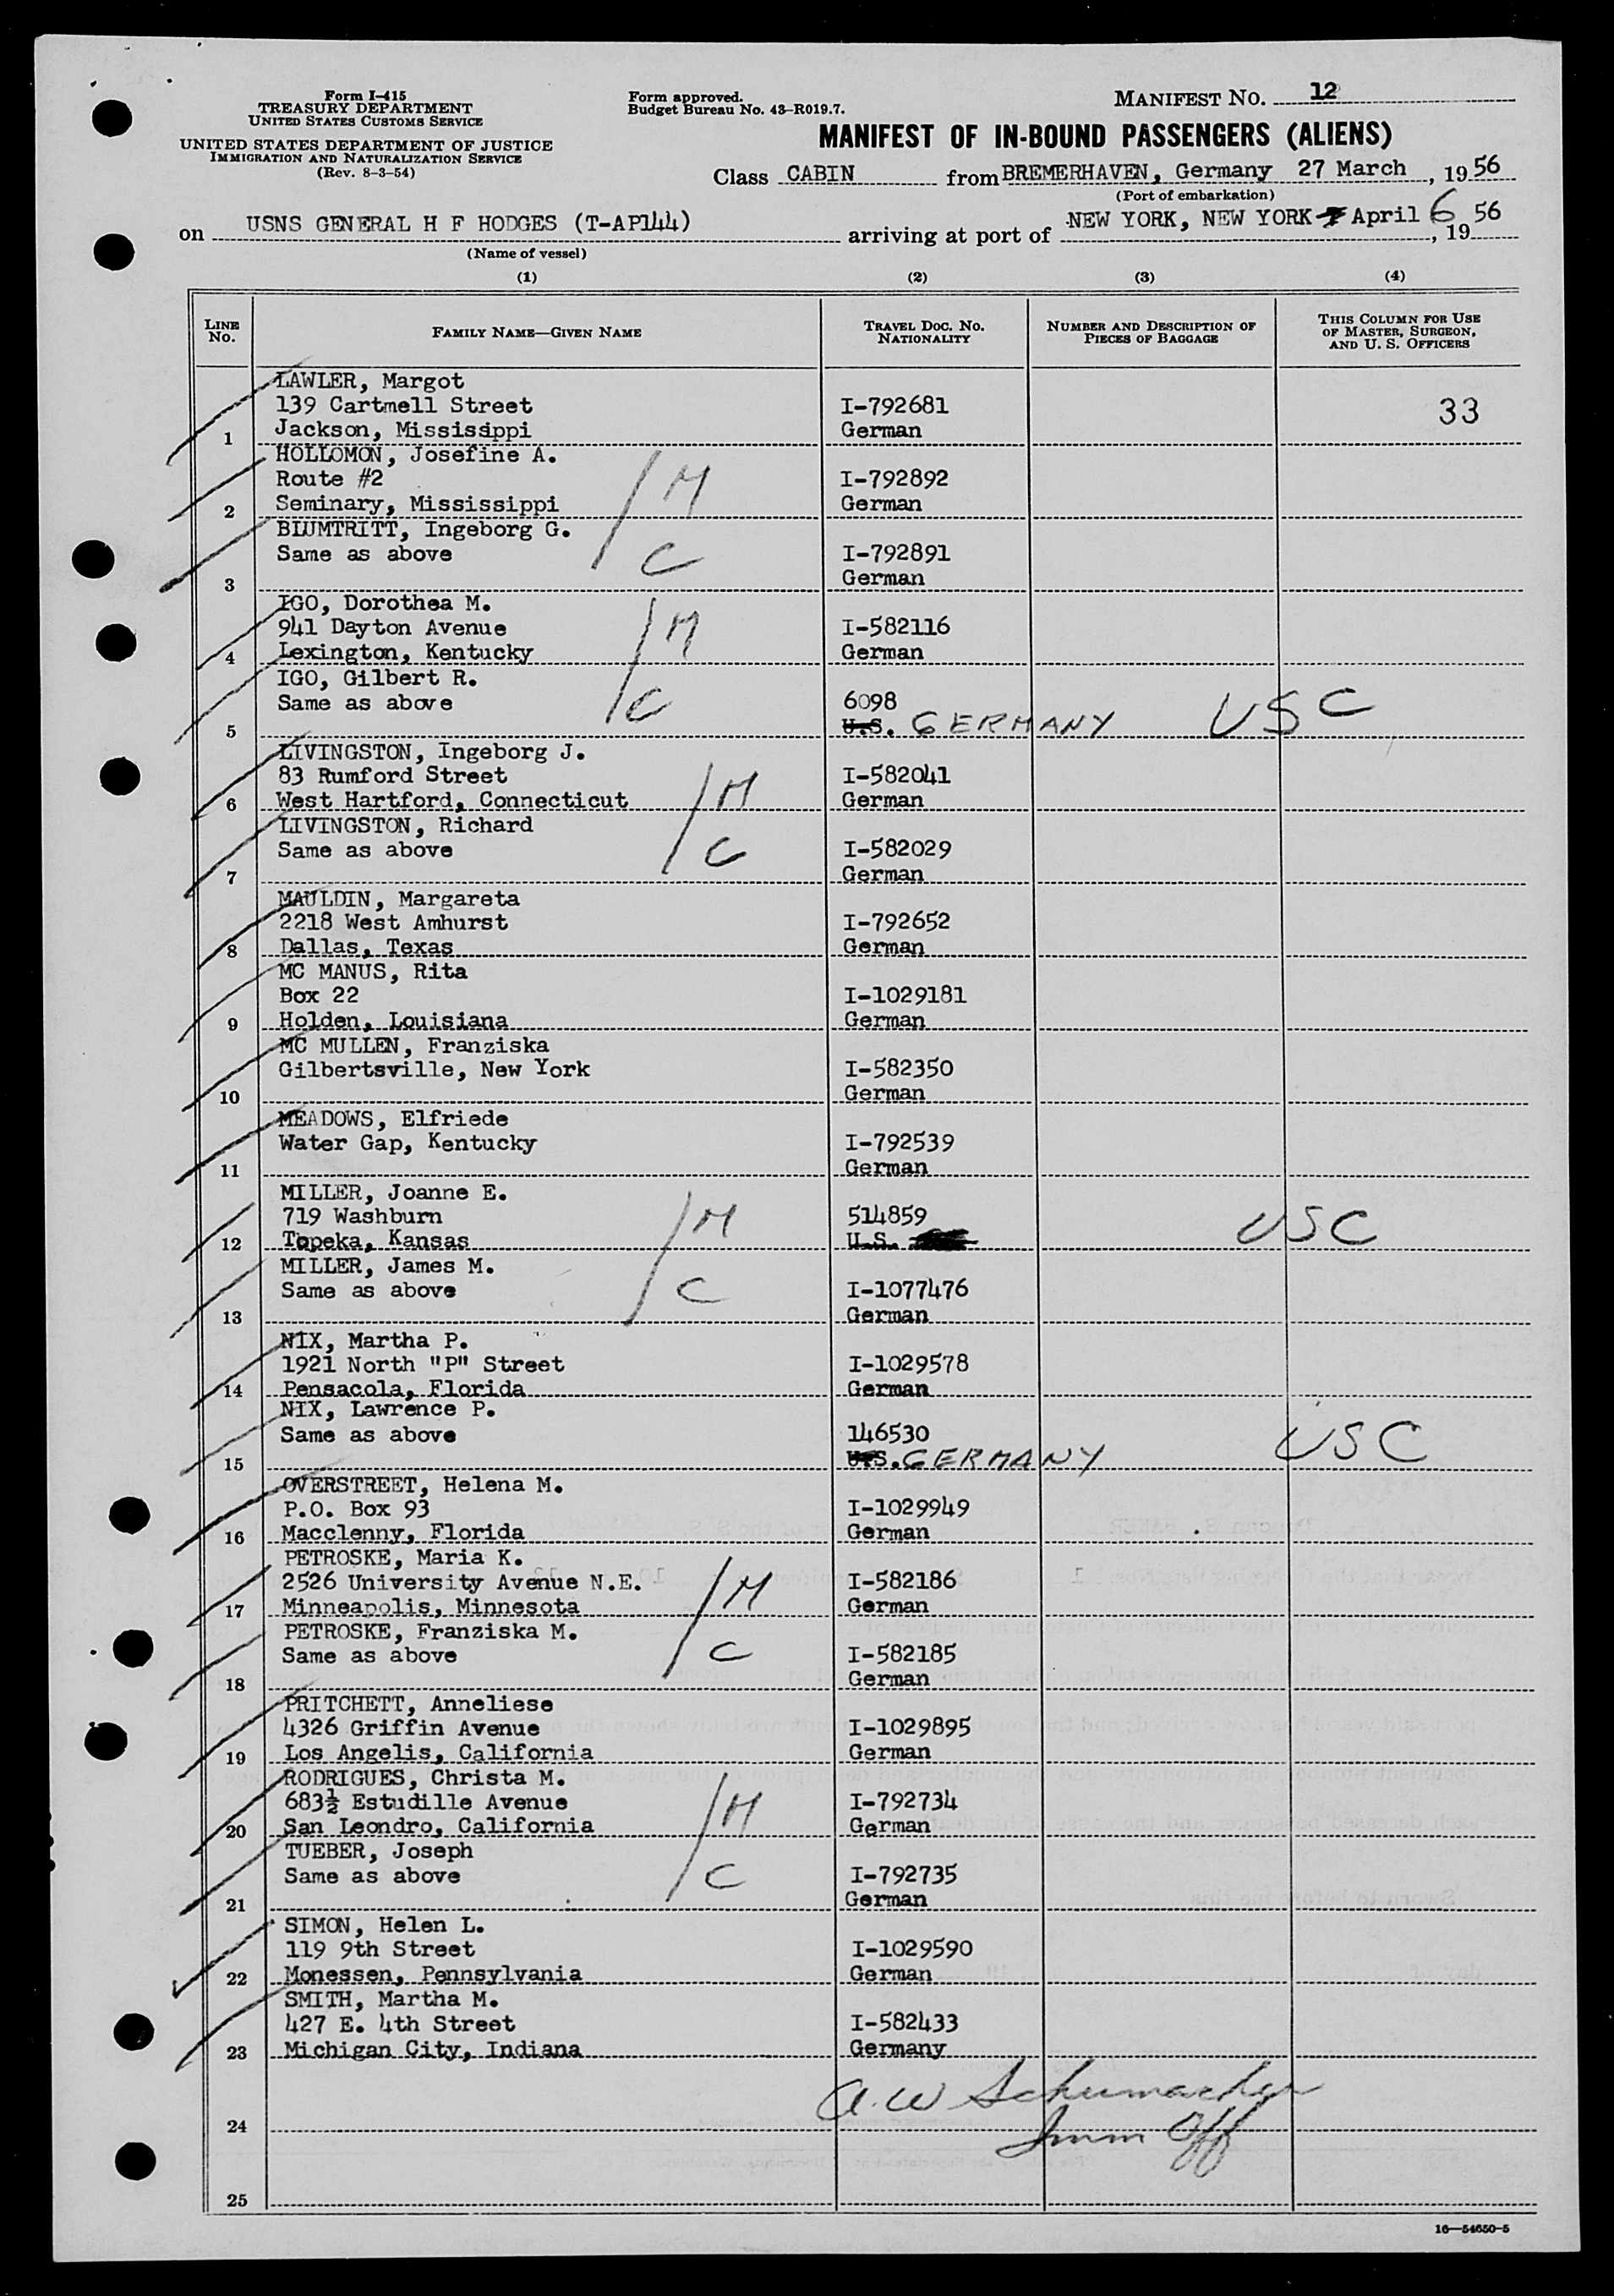 Form I-415
TREASURY DEPARTMENT
UNITED STATES CUSTOMS SERVICE
UNITED STATES DEPARTMENT OF JUSTICE
IMMIGRATION AND NATURALIZATION SERVICE
(Rev. 8-3-54)
Form approved.
Budget Bureau No. 43-R019.7.
MANIFEST NO. 12
MANIFEST OF IN-BOUND PASSENGERS (ALIENS)
Class CABIN from BREMERHAVEN, Germany 27 March, 1956
(Port of embarkation)
on USNS GENERAL H F HODGES (T-AP144) arriving at port of NEW YORK, NEW YORK 7 April 6, 1956
(Name of vessel)
(1) (2) (3) (4)
LINE NO. FAMILY NAME—GIVEN NAME TRAVEL DOC. NO. NATIONALITY NUMBER AND DESCRIPTION OF PIECES OF BAGGAGE THIS COLUMN FOR USE OF MASTER, SURGEON, AND U. S. OFFICERS
LAWLER, Margot
139 Cartmell Street I-792681 33
1 Jackson, Mississippi German
HOLLOMON, Josefine A.
Route #2 I-792892 M
2 Seminary, Mississippi German
BLUMTRITT, Ingeborg G.
Same as above C I-792891
3 German
IGO, Dorothea M.
941 Dayton Avenue M I-582116
4 Lexington, Kentucky German
IGO, Gilbert R.
Same as above C 6098
5 U.S. GERMANY USC
LIVINGSTON, Ingeborg J.
83 Rumford Street I-582041
6 West Hartford, Connecticut M German
LIVINGSTON, Richard
Same as above C I-582029
7 German
MAULDIN, Margareta
2218 West Amhurst I-792652
8 Dallas, Texas German
MC MANUS, Rita
Box 22 I-1029181
9 Holden, Louisiana German
MC MULLEN, Franziska
Gilbertsville, New York I-582350
10 German
MEADOWS, Elfriede
Water Gap, Kentucky I-792539
11 German
MILLER, Joanne E.
719 Washburn M 514859
12 Topeka, Kansas U.S. USC
MILLER, James M.
Same as above C I-1077476
13 German
NIX, Martha P.
1921 North "P" Street I-1029578
14 Pensacola, Florida German
NIX, Lawrence P.
Same as above 146530
15 U.S. GERMANY USC
OVERSTREET, Helena M.
P.O. Box 93 I-1029949
16 Macclenny, Florida German
PETROSKE, Maria K.
2526 University Avenue N.E. M I-582186
17 Minneapolis, Minnesota German
PETROSKE, Franziska M.
Same as above C I-582185
18 German
PRITCHETT, Anneliese
4326 Griffin Avenue I-1029895
19 Los Angelis, California German
RODRIGUES, Christa M.
683½ Estudille Avenue M I-792734
20 San Leondro, California German
TUEBER, Joseph
Same as above C I-792735
21 German
SIMON, Helen L.
119 9th Street I-1029590
22 Monessen, Pennsylvania German
SMITH, Martha M.
427 E. 4th Street I-582433
23 Michigan City, Indiana Germany
A.W Schumacher
24 Imm Off
25
16—54650-5